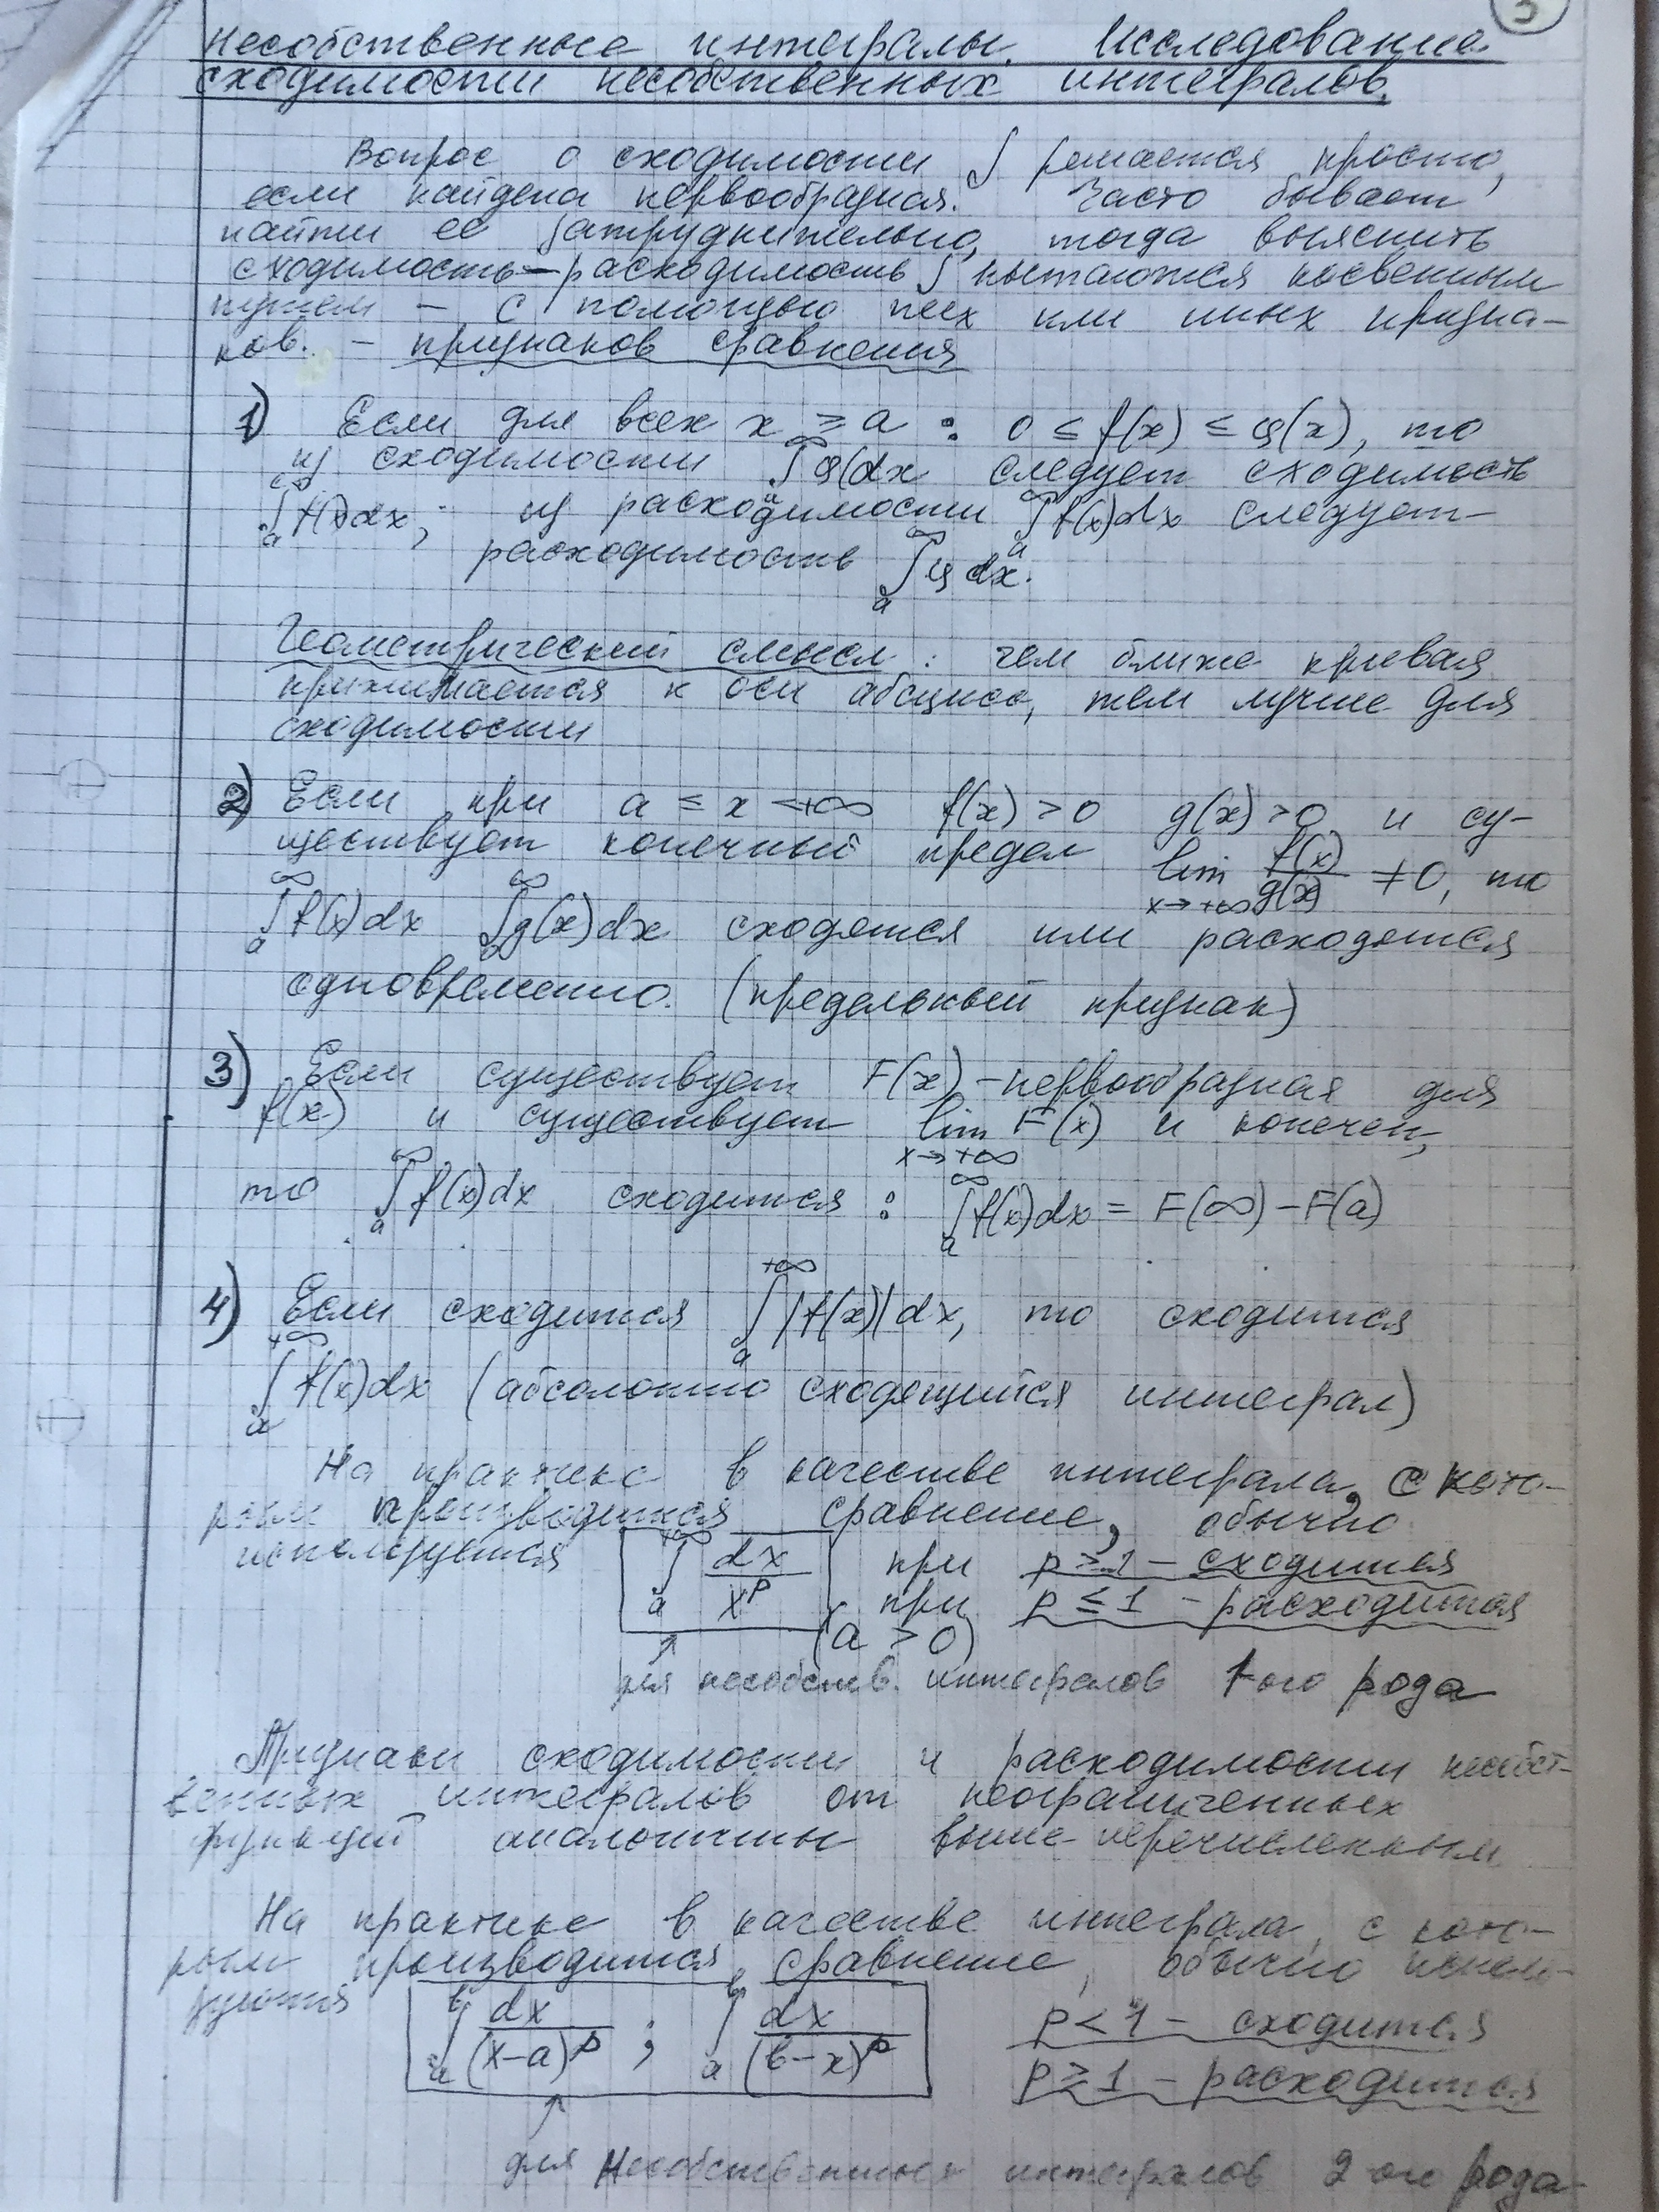 3
Несобственные интегралы. Исследование
сходимости несобственных интегралов.
Вопрос о сходимости ∫ решается просто,
если найдена первообразная. Часто бывает
найти её затруднительно, тогда выяснить
сходимость–расходимость ∫ пытаются косвенным
путем – с помощью тех или иных призна-
ков. – признаков сравнения
1) Если для всех x ≥ a : 0 ≤ f(x) ≤ φ(x), то
из сходимости ∫_a^∞ φ(dx следует сходимость
∫_a^∞ f(x)dx; из расходимости ∫_a^∞ f(x)dx следует
расходимость ∫_a^∞ φ dx.
Геометрический смысл: чем ближе кривая
прижимается к оси абсцисс, тем лучше для
сходимости
2) Если при a ≤ x < +∞ f(x) > 0 g(x) > 0 и су-
ществует конечный предел lim_{x→+∞} f(x)/g(x) ≠ 0, то
∫_a^∞ f(x)dx ∫_a^∞ g(x)dx сходятся или расходятся
одновременно. (предельный признак)
3) Если существует F(x) – первообразная для
f(x) и существует lim_{x→+∞} F(x) и конечен,
то ∫_a^∞ f(x)dx сходится : ∫_a^∞ f(x)dx = F(∞) – F(a)
4) Если сходится ∫_a^{+∞} |f(x)| dx, то сходится
∫_a^{+∞} f(x)dx (абсолютно сходящийся интеграл)
На практике в качестве интеграла, с кото-
рым производится сравнение, обычно
используется ∫_a^{+∞} dx/x^p при p > 1 – сходится
при p ≤ 1 – расходится
(a > 0)
для несобств. интегралов 1-ого рода
Признаки сходимости и расходимости несобст-
венных интегралов от неограниченных
функций аналогичны выше перечисленным
На практике в качестве интеграла, с кото-
рым производится сравнение, обычно исполь-
зуются ∫_a^b dx/(x–a)^p ; ∫_a^b dx/(b–x)^p p < 1 – сходится
p ≥ 1 – расходится
для Несобственных интегралов 2-ого рода